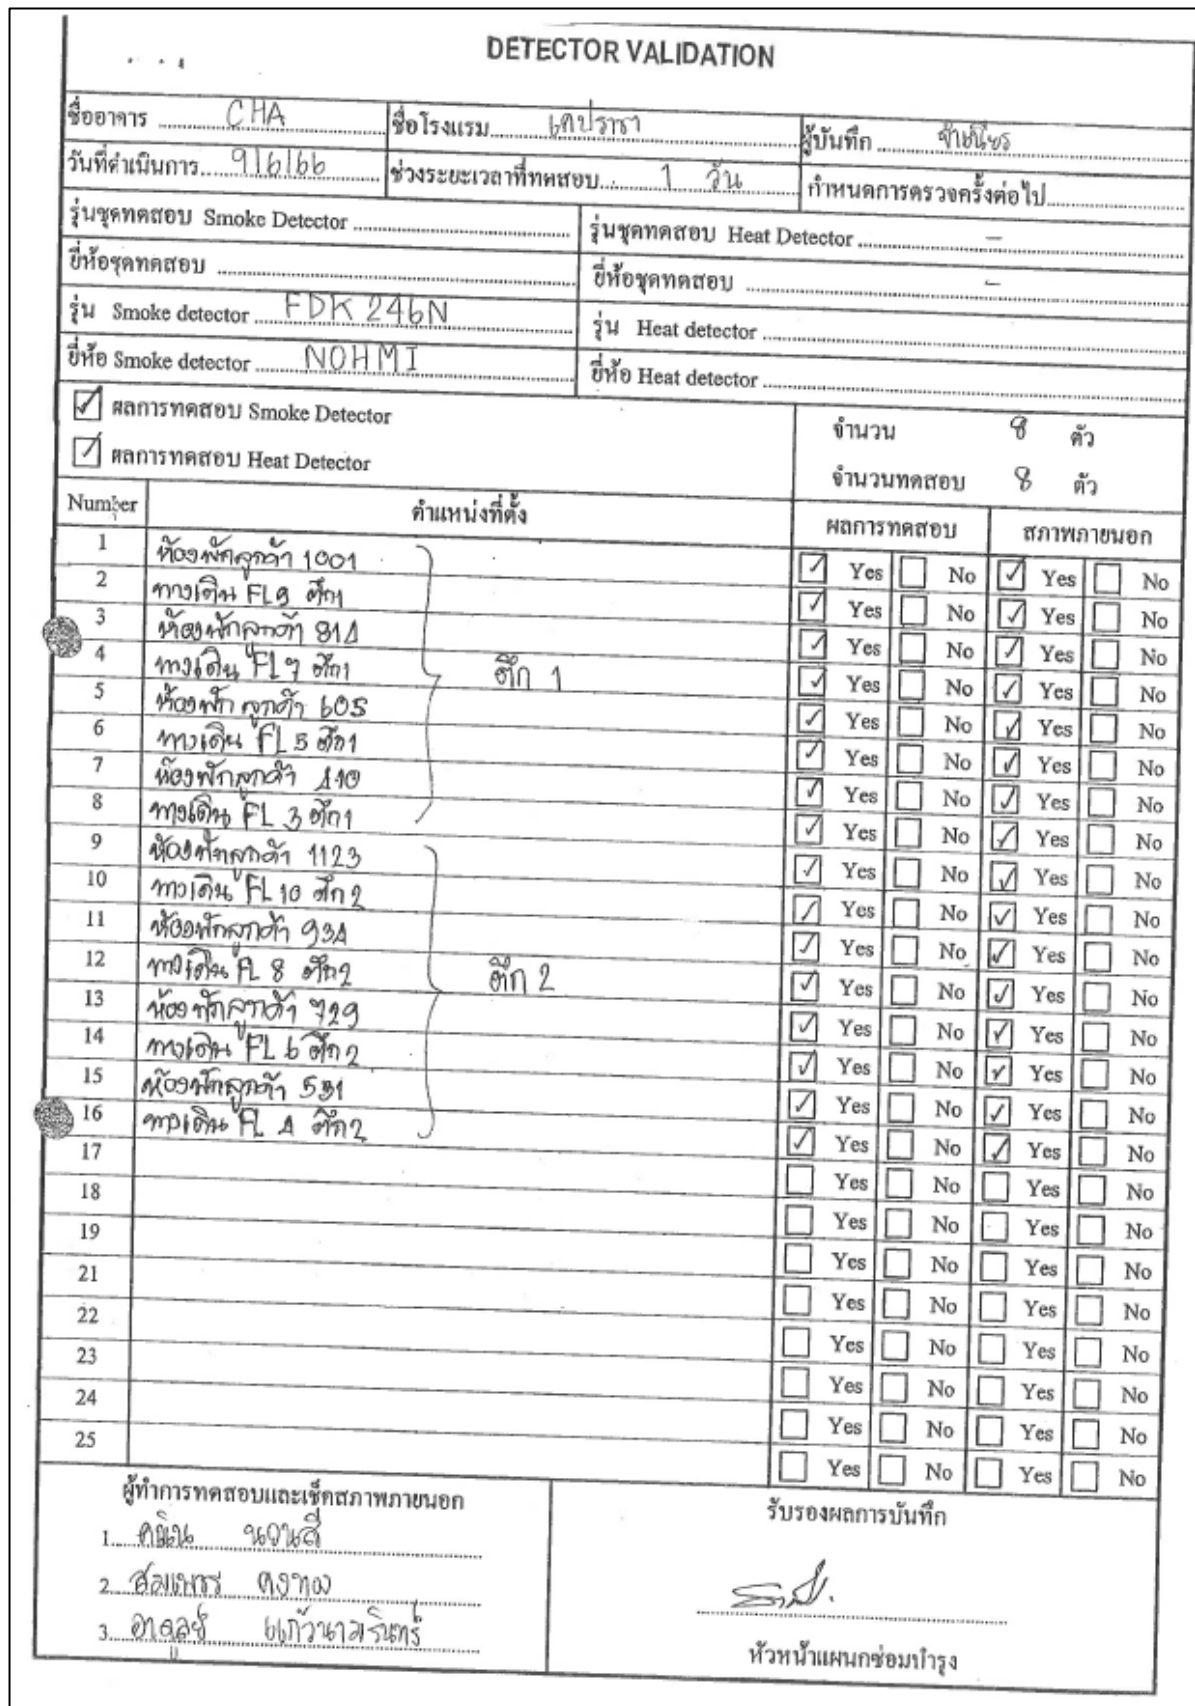 DETECTOR VALIDATION
ชื่ออาคาร CHA ชื่อโรงแรม เคปราชา ผู้บันทึก จำเนียร
วันที่ดำเนินการ 9/6/66 ช่วงระยะเวลาที่ทดสอบ 1 วัน กำหนดการตรวจครั้งต่อไป
รุ่นชุดทดสอบ Smoke Detector รุ่นชุดทดสอบ Heat Detector -
ยี่ห้อชุดทดสอบ ยี่ห้อชุดทดสอบ -
รุ่น Smoke detector FDK 246N รุ่น Heat detector
ยี่ห้อ Smoke detector NOHMI ยี่ห้อ Heat detector
ผลการทดสอบ Smoke Detector จำนวน 8 ตัว
ผลการทดสอบ Heat Detector จำนวนทดสอบ 8 ตัว
Number ตำแหน่งที่ตั้ง ผลการทดสอบ สภาพภายนอก
1 ห้องพักลูกค้า 1001 Yes No Yes No
2 ทางเดิน FL9 ตึก1 Yes No Yes No
3 ห้องพักลูกค้า 814 Yes No Yes No
4 ทางเดิน FL 7 ตึก1 ตึก 1 Yes No Yes No
5 ห้องพักลูกค้า 605 Yes No Yes No
6 ทางเดิน FL 5 ตึก1 Yes No Yes No
7 ห้องพักลูกค้า 410 Yes No Yes No
8 ทางเดิน FL 3 ตึก1 Yes No Yes No
9 ห้องพักลูกค้า 1123 Yes No Yes No
10 ทางเดิน FL 10 ตึก 2 Yes No Yes No
11 ห้องพักลูกค้า 934 Yes No Yes No
12 ทางเดิน FL 8 ตึก2 ตึก 2 Yes No Yes No
13 ห้องพักลูกค้า 729 Yes No Yes No
14 ทางเดิน FL 6 ตึก 2 Yes No Yes No
15 ห้องพักลูกค้า 531 Yes No Yes No
16 ทางเดิน FL 4 ตึก2 Yes No Yes No
17 Yes No Yes No
18 Yes No Yes No
19 Yes No Yes No
21 Yes No Yes No
22 Yes No Yes No
23 Yes No Yes No
24 Yes No Yes No
25 Yes No Yes No
ผู้ทำการทดสอบและเช็คสภาพภายนอก รับรองผลการบันทึก
1. นวนสี
2. คงทอง
3.
หัวหน้าแผนกซ่อมบำรุง